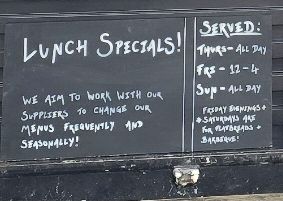 LUNCH SPECIALS!
WE AIM TO WORK WITH OUR
SUPPLIERS TO CHANGE OUR
MENUS FREQUENTLY AND
SEASONALLY!
SERVED:
THURS - ALL DAY
FRI - 12-4
SUN - ALL DAY
FRIDAY EVENINGS +
* SATURDAYS ARE *
FOR FLATBREADS +
BARBEQUE!